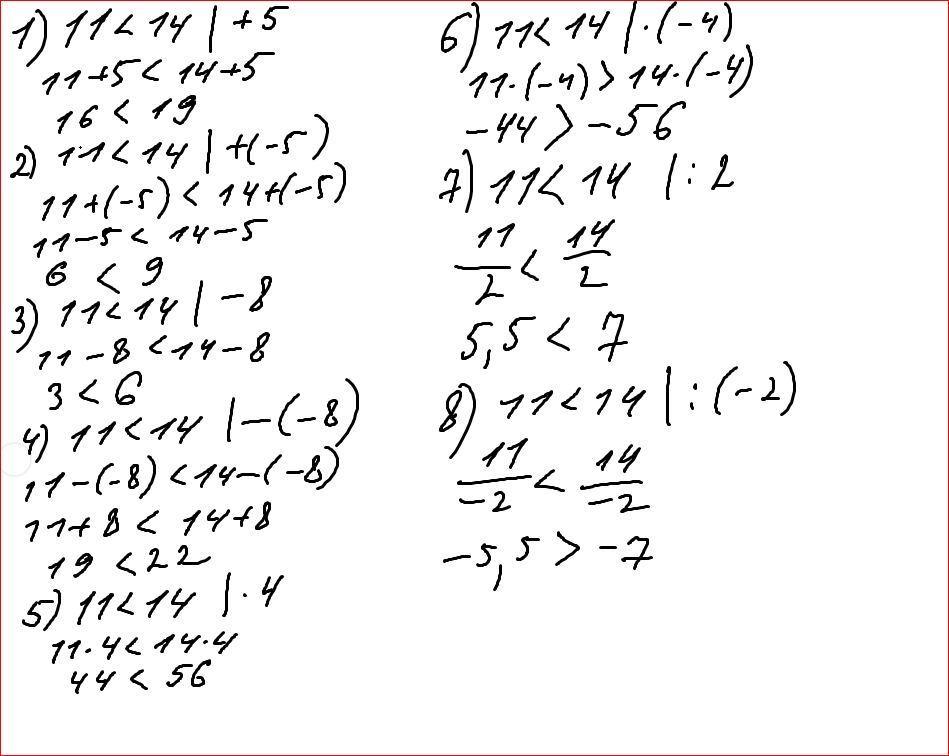 1) 11 < 14 | +5
11+5 < 14+5
16 < 19
2) 11 < 14 | +(-5)
11+(-5) < 14+(-5)
11-5 < 14-5
6 < 9
3) 11 < 14 | -8
11-8 < 14-8
3 < 6
4) 11 < 14 | -(-8)
11-(-8) < 14-(-8)
11+8 < 14+8
19 < 22
5) 11 < 14 | · 4
11·4 < 14·4
44 < 56
6) 11 < 14 | ·(-4)
11·(-4) > 14·(-4)
-44 > -56
7) 11 < 14 | : 2
11/2 < 14/2
5,5 < 7
8) 11 < 14 | : (-2)
11/-2 < 14/-2
-5,5 > -7